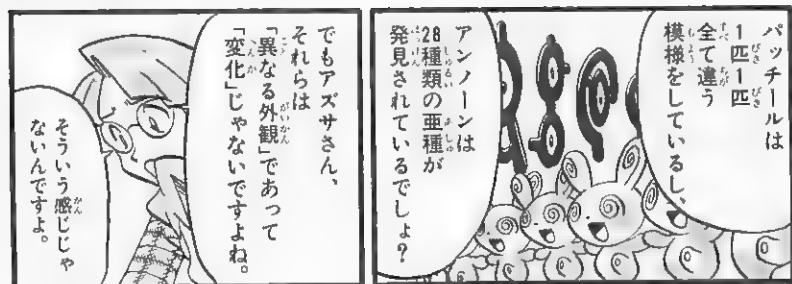 パッチールは
1匹1匹
全て違う
模様をしているし、
アンノーンは
28種類の亜種が
発見されているでしょ?
でもアズサさん、
それらは
「異なる外観」であって
「変化」じゃないですよね。
そういう感じじゃ
ないんですよ。